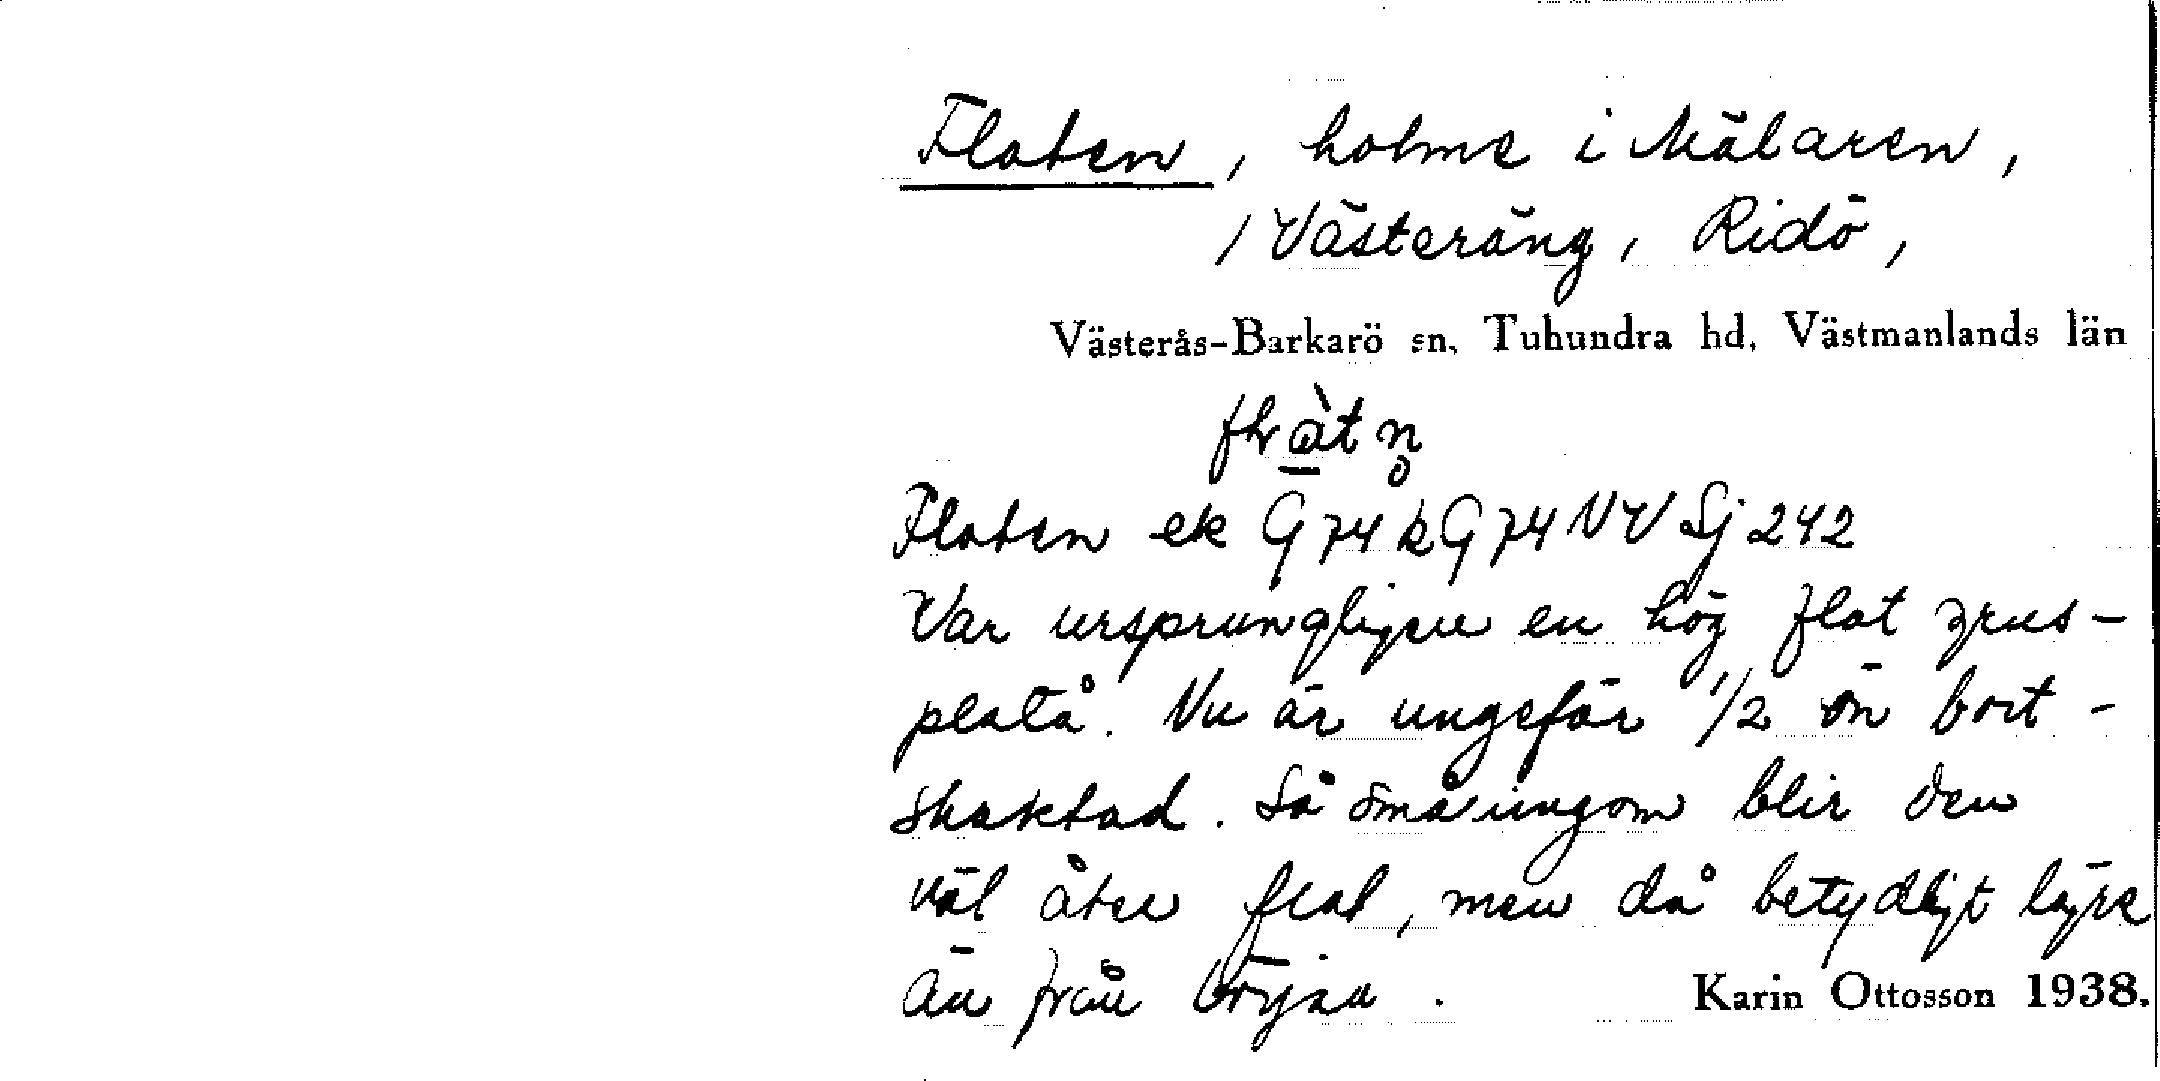 Flaten, holme i Mälaren,
/ Västeräng, Ridö,
Västerås-Barkarö sn, Tuhundra hd, Västmanlands län
Flaten ek G 74 k G 74 NV Sj 242
Var ursprungligen en hög flat grus-
platå. Nu är ungefär 1/2 ön bort-
skaktad. Så småningom blir den
väl åter flat, men då betydligt lägre
än från början.
Karin Ottosson 1938.